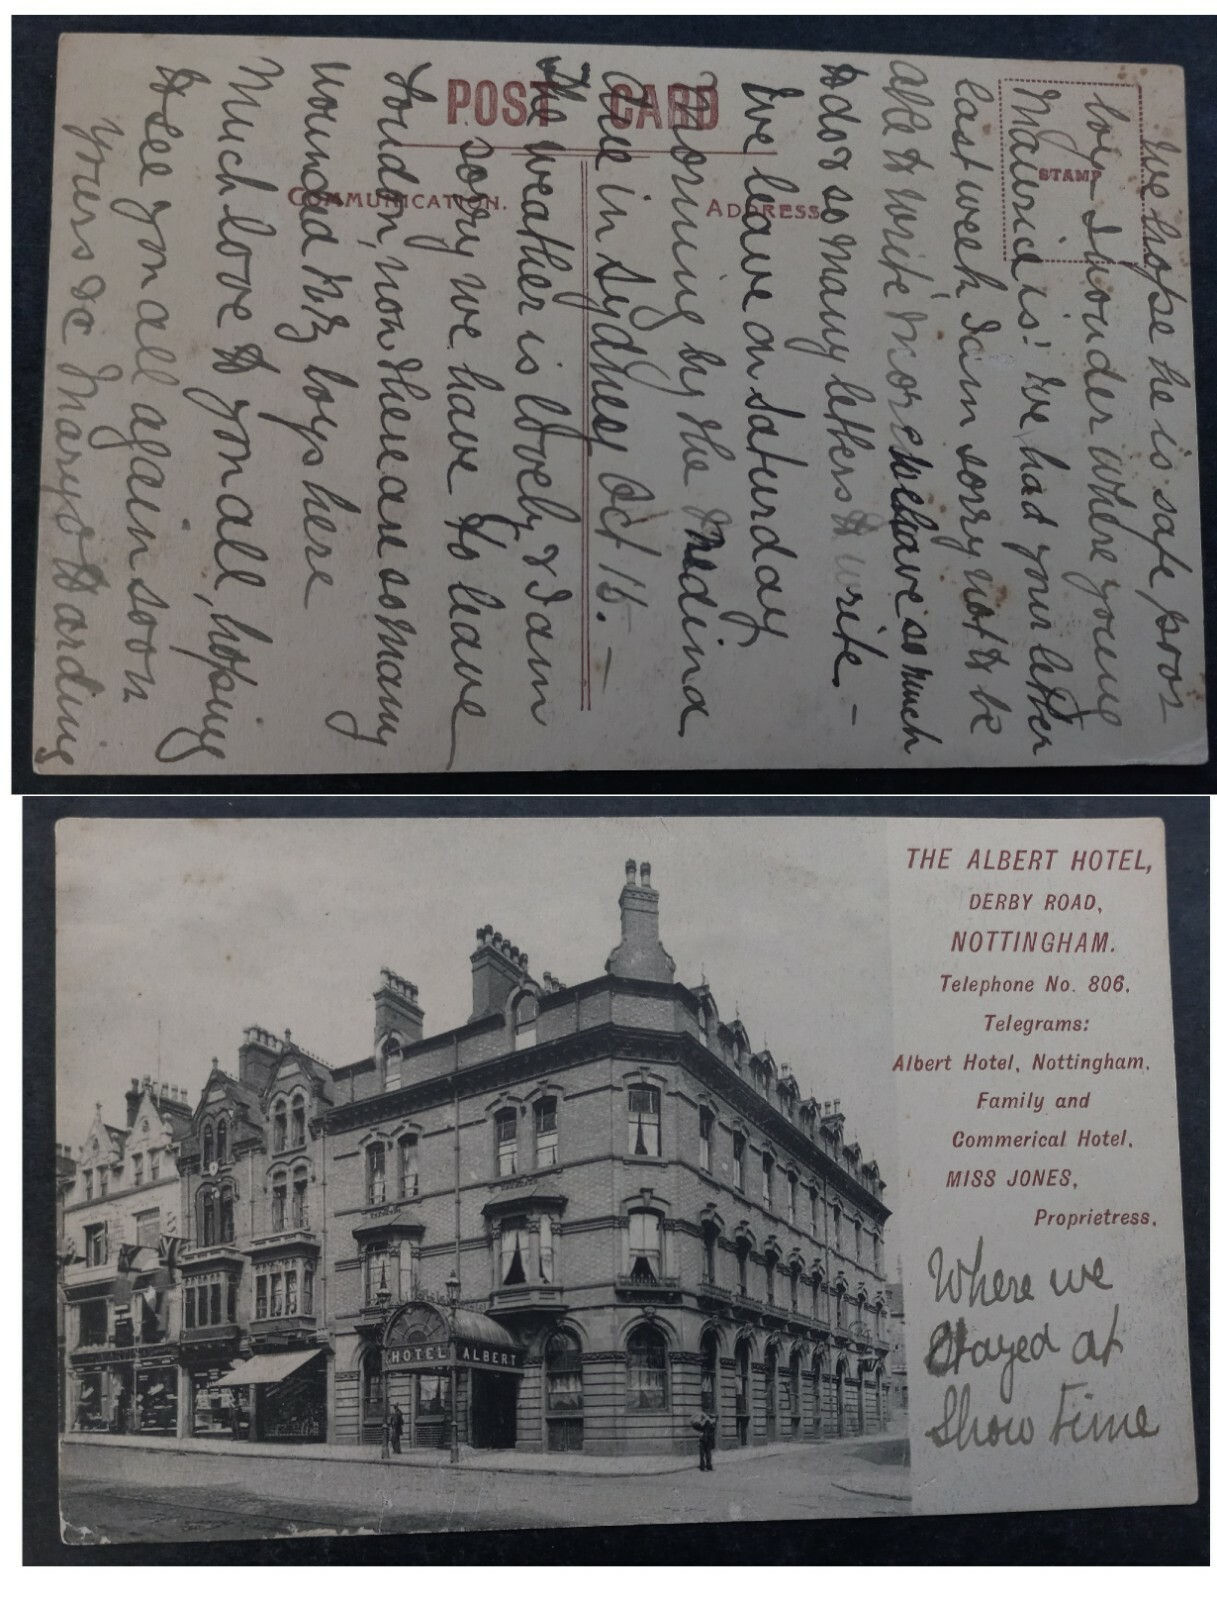 POST CARD
COMMUNICATION.
ADDRESS
STAMP
We hope he is safe, poor
boy. I wonder where young
Maurice is! We had your letter
last week I am sorry not to be
able to write more we have so much
to do & so many letters to write. –
We leave on Saturday
Morning by the Medina
due in Sydney Oct 16. –
The weather is lovely & I am
sorry we have to leave
London, now there are so many
wounded N.Z boys here
Much love to you all, hoping
to see you all again soon
Yours &c Mary Harding
THE ALBERT HOTEL,
DERBY ROAD,
NOTTINGHAM.
Telephone No. 806.
Telegrams:
Albert Hotel, Nottingham.
Family and
Commerical Hotel.
MISS JONES,
Proprietress.
Where we
Stayed at
Show time
HOTEL ALBERT